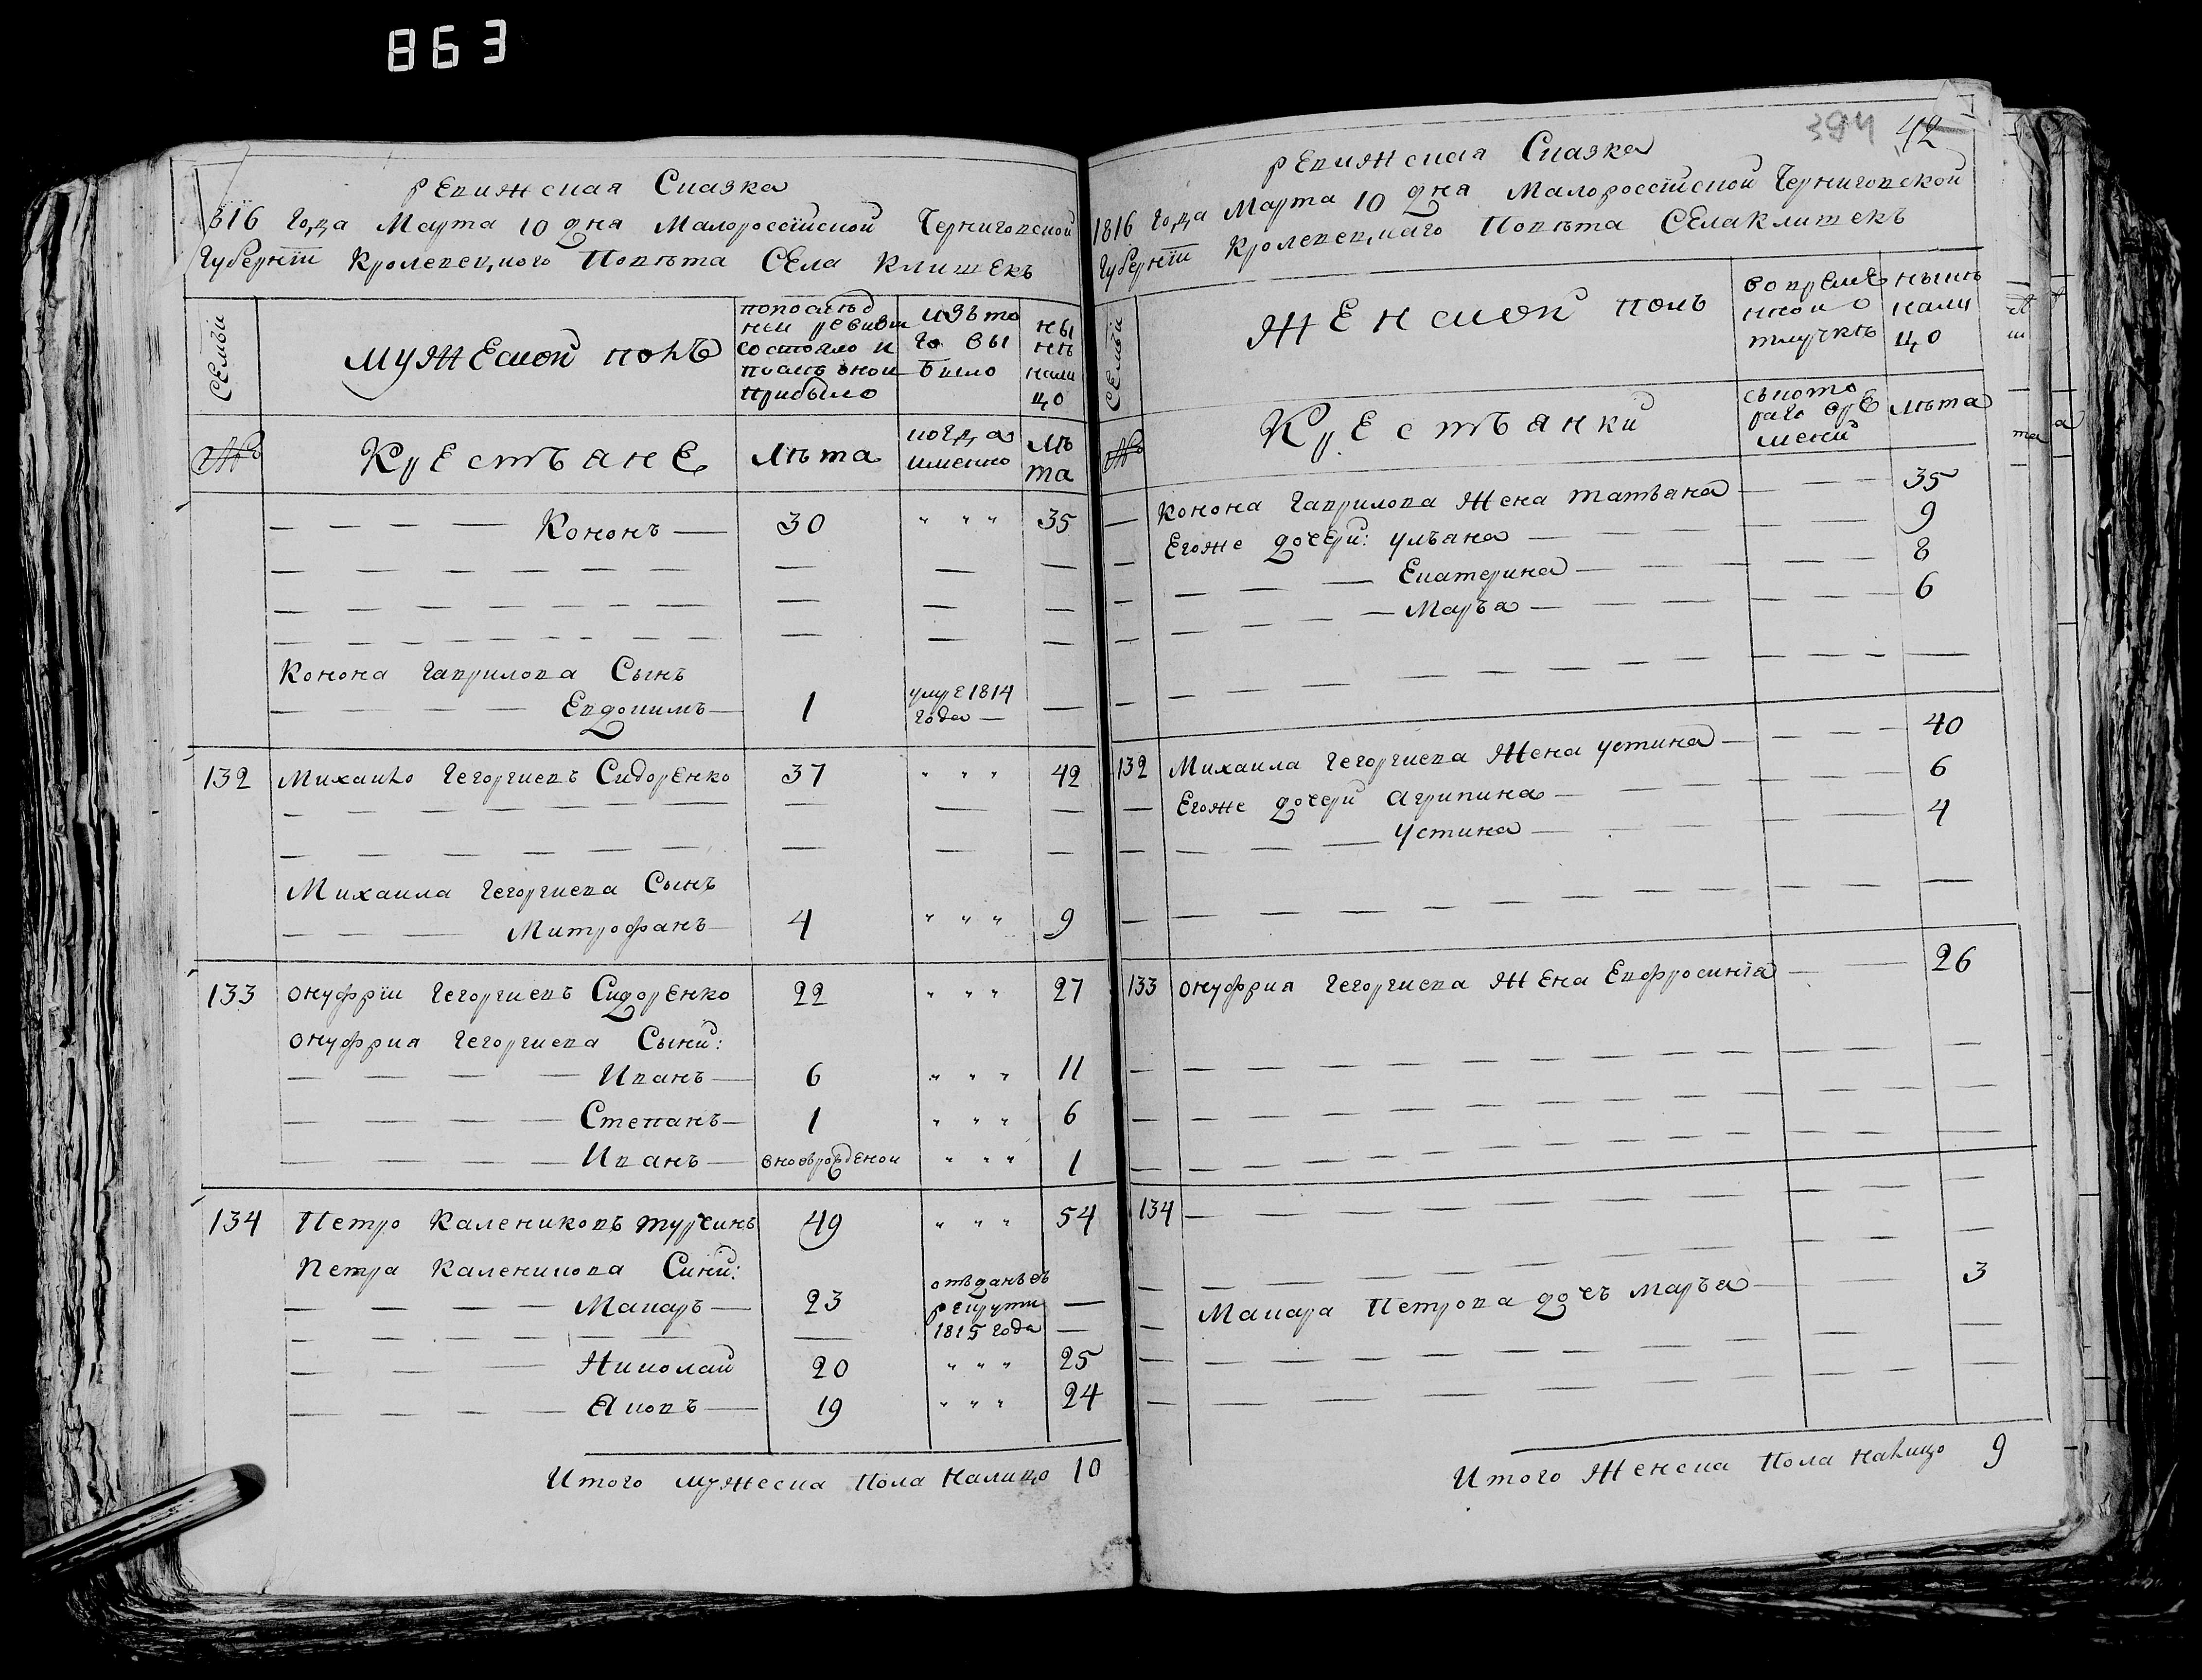 863
Ревижская Сказка
1816 года Марта 10 дня Малороссійской Черниговской
Губерніи Кролевецкого Повѣта Села Клишекъ
Семьи
Мужеской полъ
по послѣд
ней ревизіи
состояло и
послѣ оной
прибыло
изъ то
го вы
было
ны
нѣ
нали
цо
№
Крестьяне
Лѣта
когда
именно
Лѣ
та
Кононъ 30 " " " 35
Конона Гаврилова Сынъ
Евдокимъ 1 умре 1814
года
132 Михайло Гегоргиевъ Сидоренко 37 " " " 42
Михаила Гегоргиева Сынъ
Митрофанъ 4 " " " 9
133 Онуфрій Гегоргиевъ Сидоренко 22 " " " 27
Онуфрия Гегоргиева Сыни:
Иванъ 6 " " " 11
Степанъ 1 " " " 6
Иванъ вноврожденой " " " 1
134 Петро Калениковъ Турчинъ 49 " " " 54
Петра Каленикова Сини:
Макаръ 23 отъданъ въ
рекрути
1815 года
Николай 20 " " " 25
Яковъ 19 " " " 24
Итого мужеска пола налицо 10
394 42
Ревижская Сказка
1816 года Марта 10 дня Малороссійской Черниговской
Губерніи Кролевецкаго Повѣта Села Клишекъ
Семьи
Женской полъ
во време
нной о
тлучкѣ
нынѣ
нали
цо
№
Крестьянки
съ кото
раго вре
мени
Лѣта
Конона Гаврилова Жена Татьяна 35
Егоже дочери: Ульяна 9
Екатерина 8
Марья 6
132 Михаила Гегоргиева Жена Устина 40
Егоже дочери Агрипина 6
Устина 4
133 Онуфрия Гегоргиева Жена Евфросинія 26
134
Макара Петрова дочь Марья 3
Итого Женска Пола налицо 9